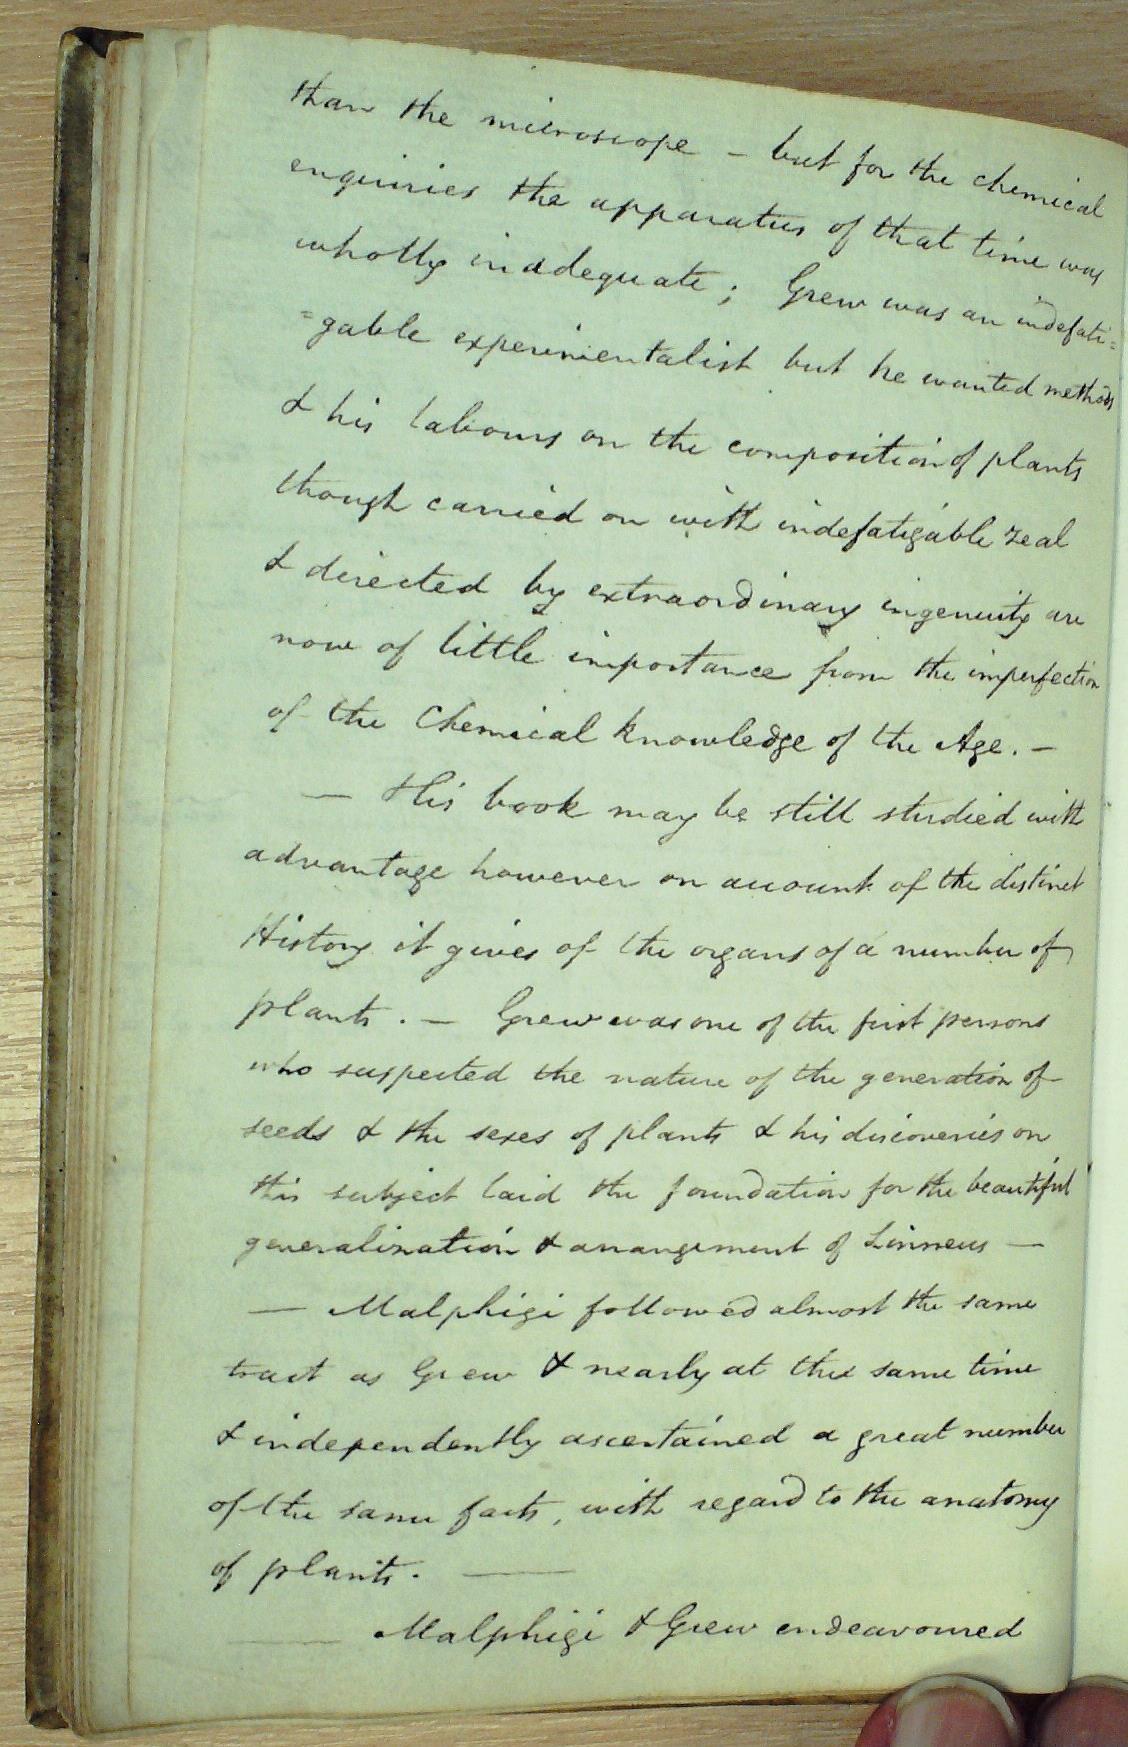 than the microscope – but for the chemical
enquiries the apparatus of that time was
wholly inadequate; Grew was an indefati=
=gable experimentalist but he wanted methods
& his labours on the composition of plants
though carried on with indefatigable zeal
& directed by extraordinary ingenuity are
now of little importance from the imperfection
of the Chemical knowledge of the Age. –
— His book may be still studied with
advantage however on account of the distinct
History it gives of the organs of a number of
plants. – Grew was one of the first persons
who suspected the nature of the generation of
seeds & the sexes of plants & his discoveries on
this subject laid the foundation for the beautiful
generalization & arrangement of Linneus —
— Malphigi followed almost the same
tract as Grew & nearly at the same time
& independently ascertained a great number
of the same facts, with regard to the anatomy
of plants. —
— Malphigi & Grew endeavoured